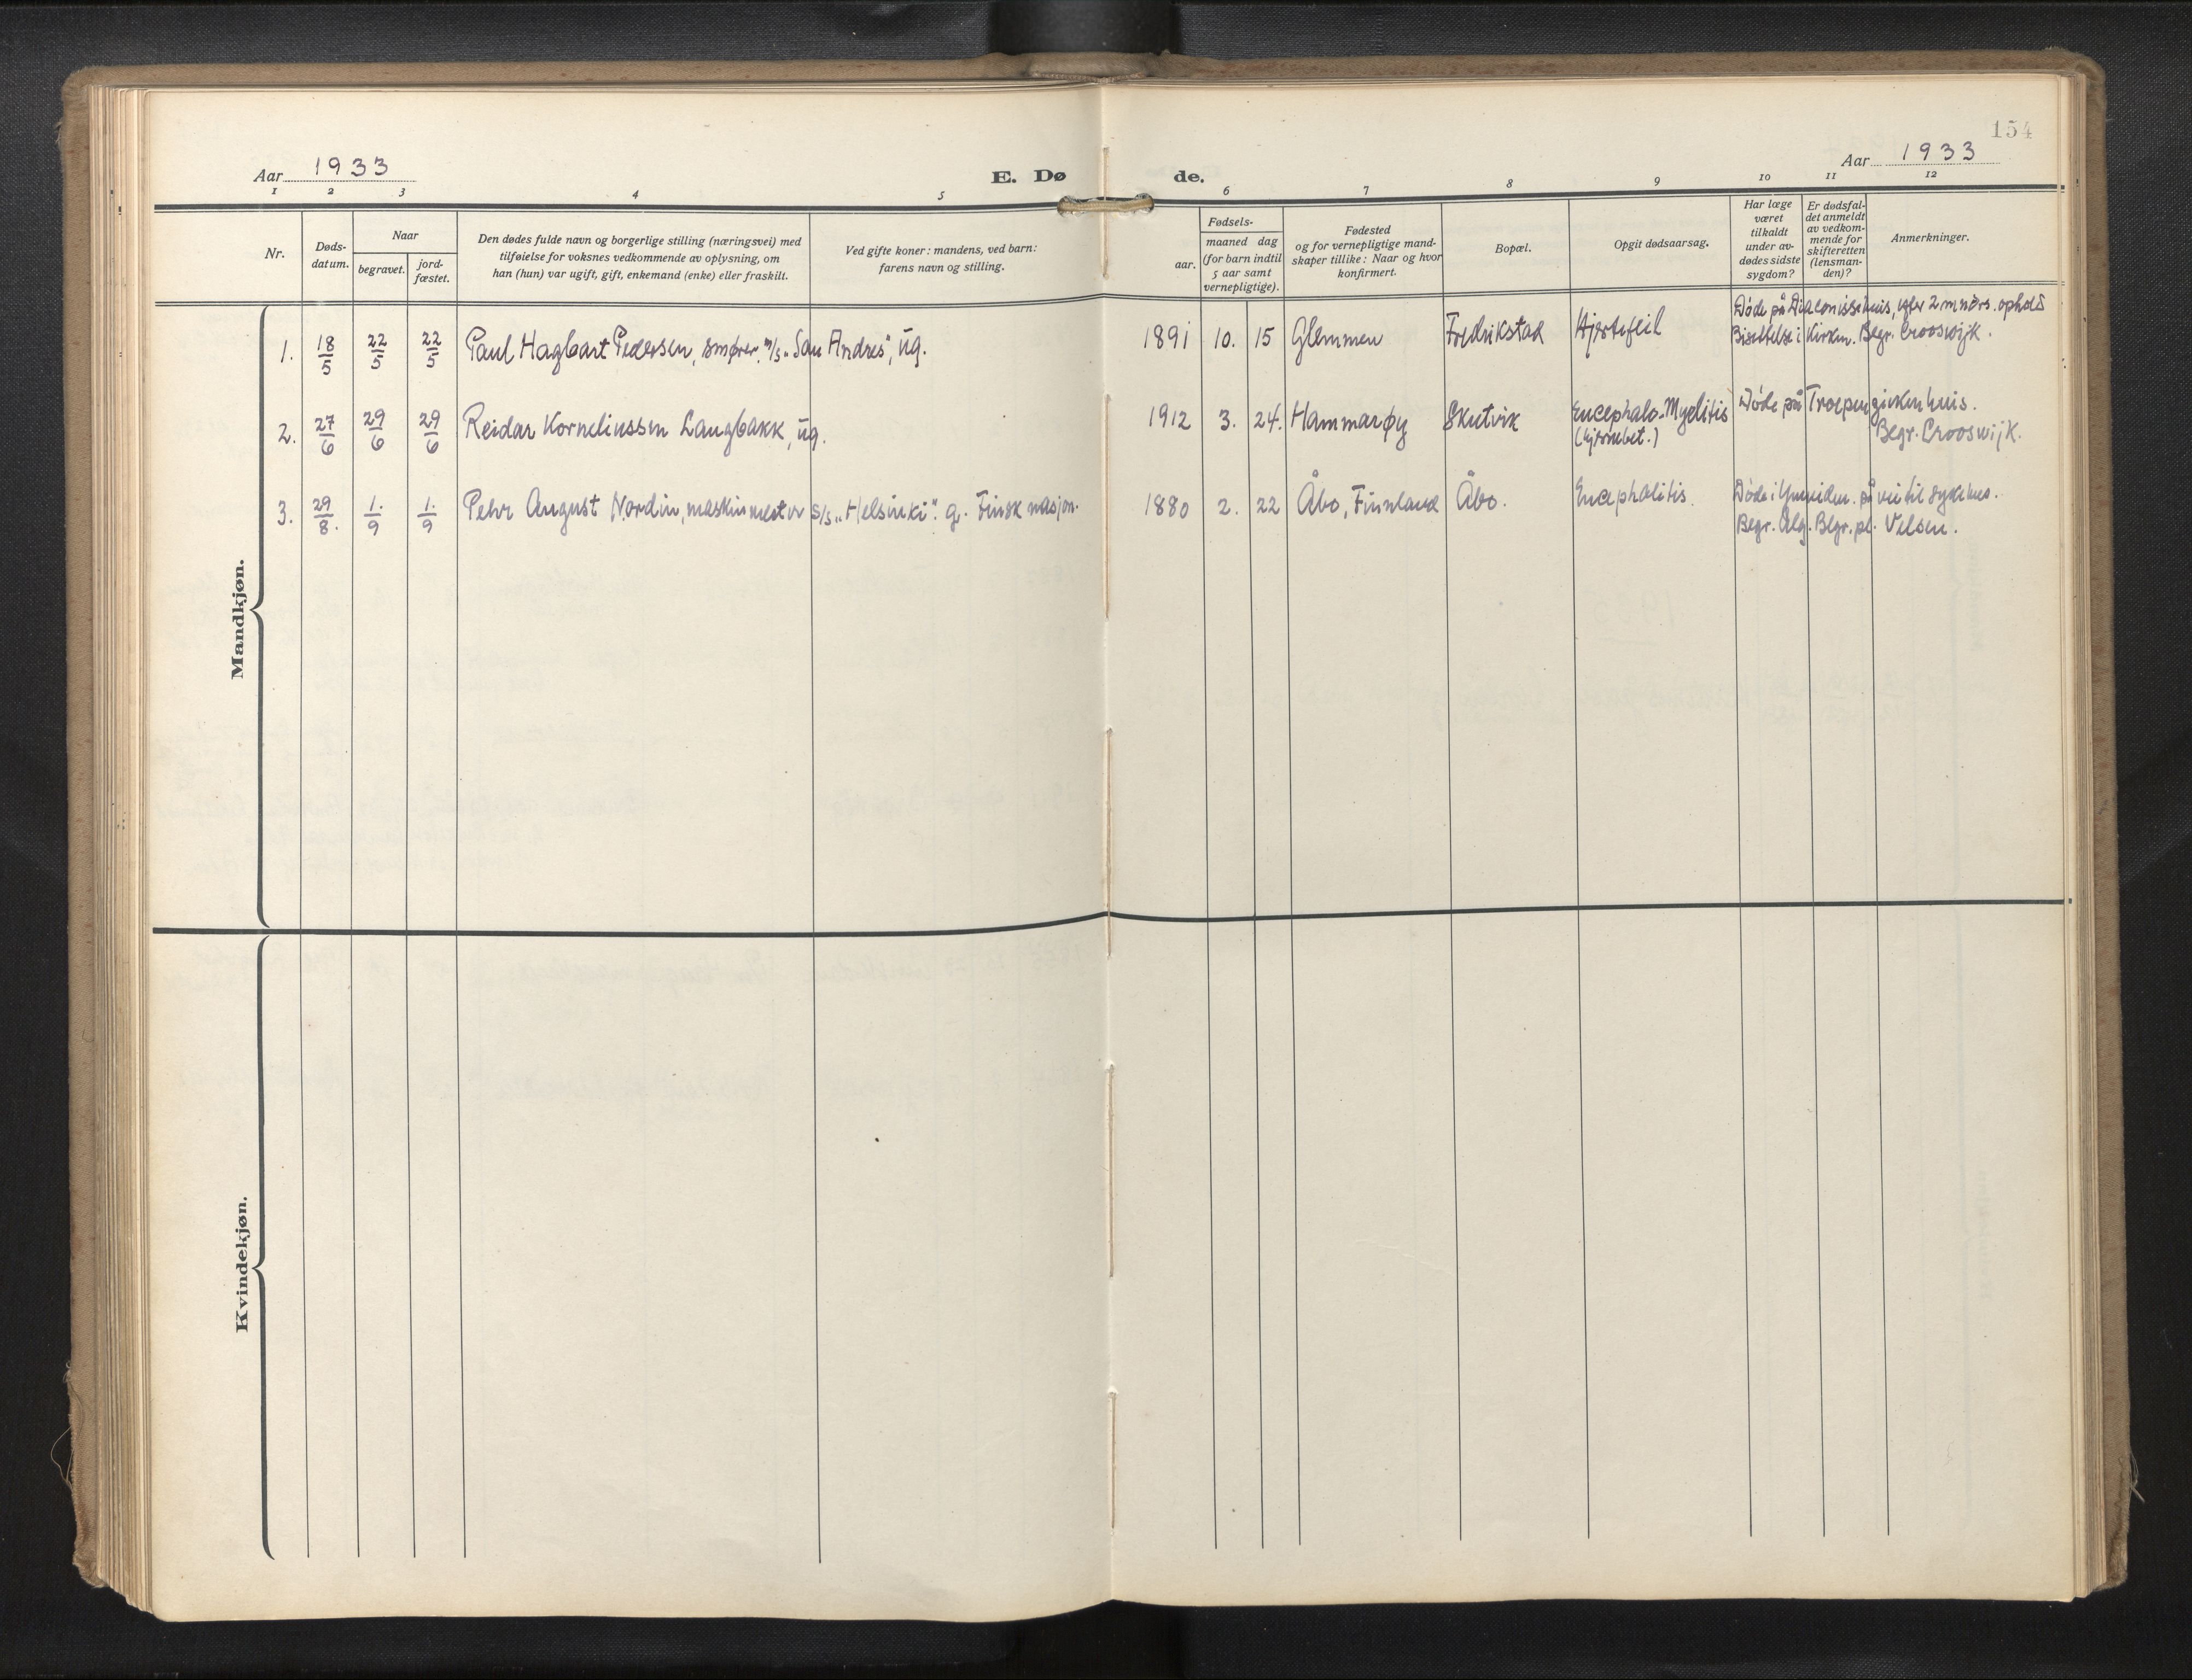 154
Aar 1933
E. Dø de.
Aar 1933
1 2 3 4 5 6 7 8 9 10 11 12
Nr.
Døds-
datum.
Naar
begravet.
jord-
fæstet.
Den dødes fulde navn og borgerlige stilling (næringsvei) med
tilføielse for voksnes vedkommende av oplysning, om
han (hun) var ugift, gift, enkemand (enke) eller fraskilt.
Ved gifte koner: mandens, ved barn:
farens navn og stilling.
Fødsels-
aar.
maaned dag
(for barn indtil
5 aar samt
vernepligtige).
Fødested
og for vernepligtige mand-
skaper tillike: Naar og hvor
konfirmert.
Bopæl.
Opgit dødsaarsag.
Har læge
været
tilkaldt
under av-
dødes sidste
sygdom?
Er dødsfal-
det anmeldt
av vedkom-
mende for
skifteretten
(lensman-
den)?
Anmerkninger.
Mandkjøn.
1. 18/5 22/5 22/5 Paul Hagbart Pedersen, smører, M/S "San Andres", ug. 1891 10. 15 Glemmen Fredrikstad Hjertefeil
Døde på Diakonissehuis, efter 2 mndrs. ophold
Bisettelse i Kirken. Begr. Crooswijk.
2. 27/6 29/6 29/6 Reidar Korneliussen Langbakk, ug. 1912 3. 24. Hammarøy Skutvik Encephalo-Myelitis
Døde på Troepenziekenhuis.
Begr. Crooswijk.
3. 29/8. 1./9 1./9 Pehr August Nordin, maskinmester S/S "Helsinki". g. Finsk nasjon. 1880 2. 22 Åbo, Finnland Åbo. Encephalitis
Døde i Ymuiden. på vei til sykehus.
Begr. Alg. Begr. pl. Velsen.
Kvindekjøn.